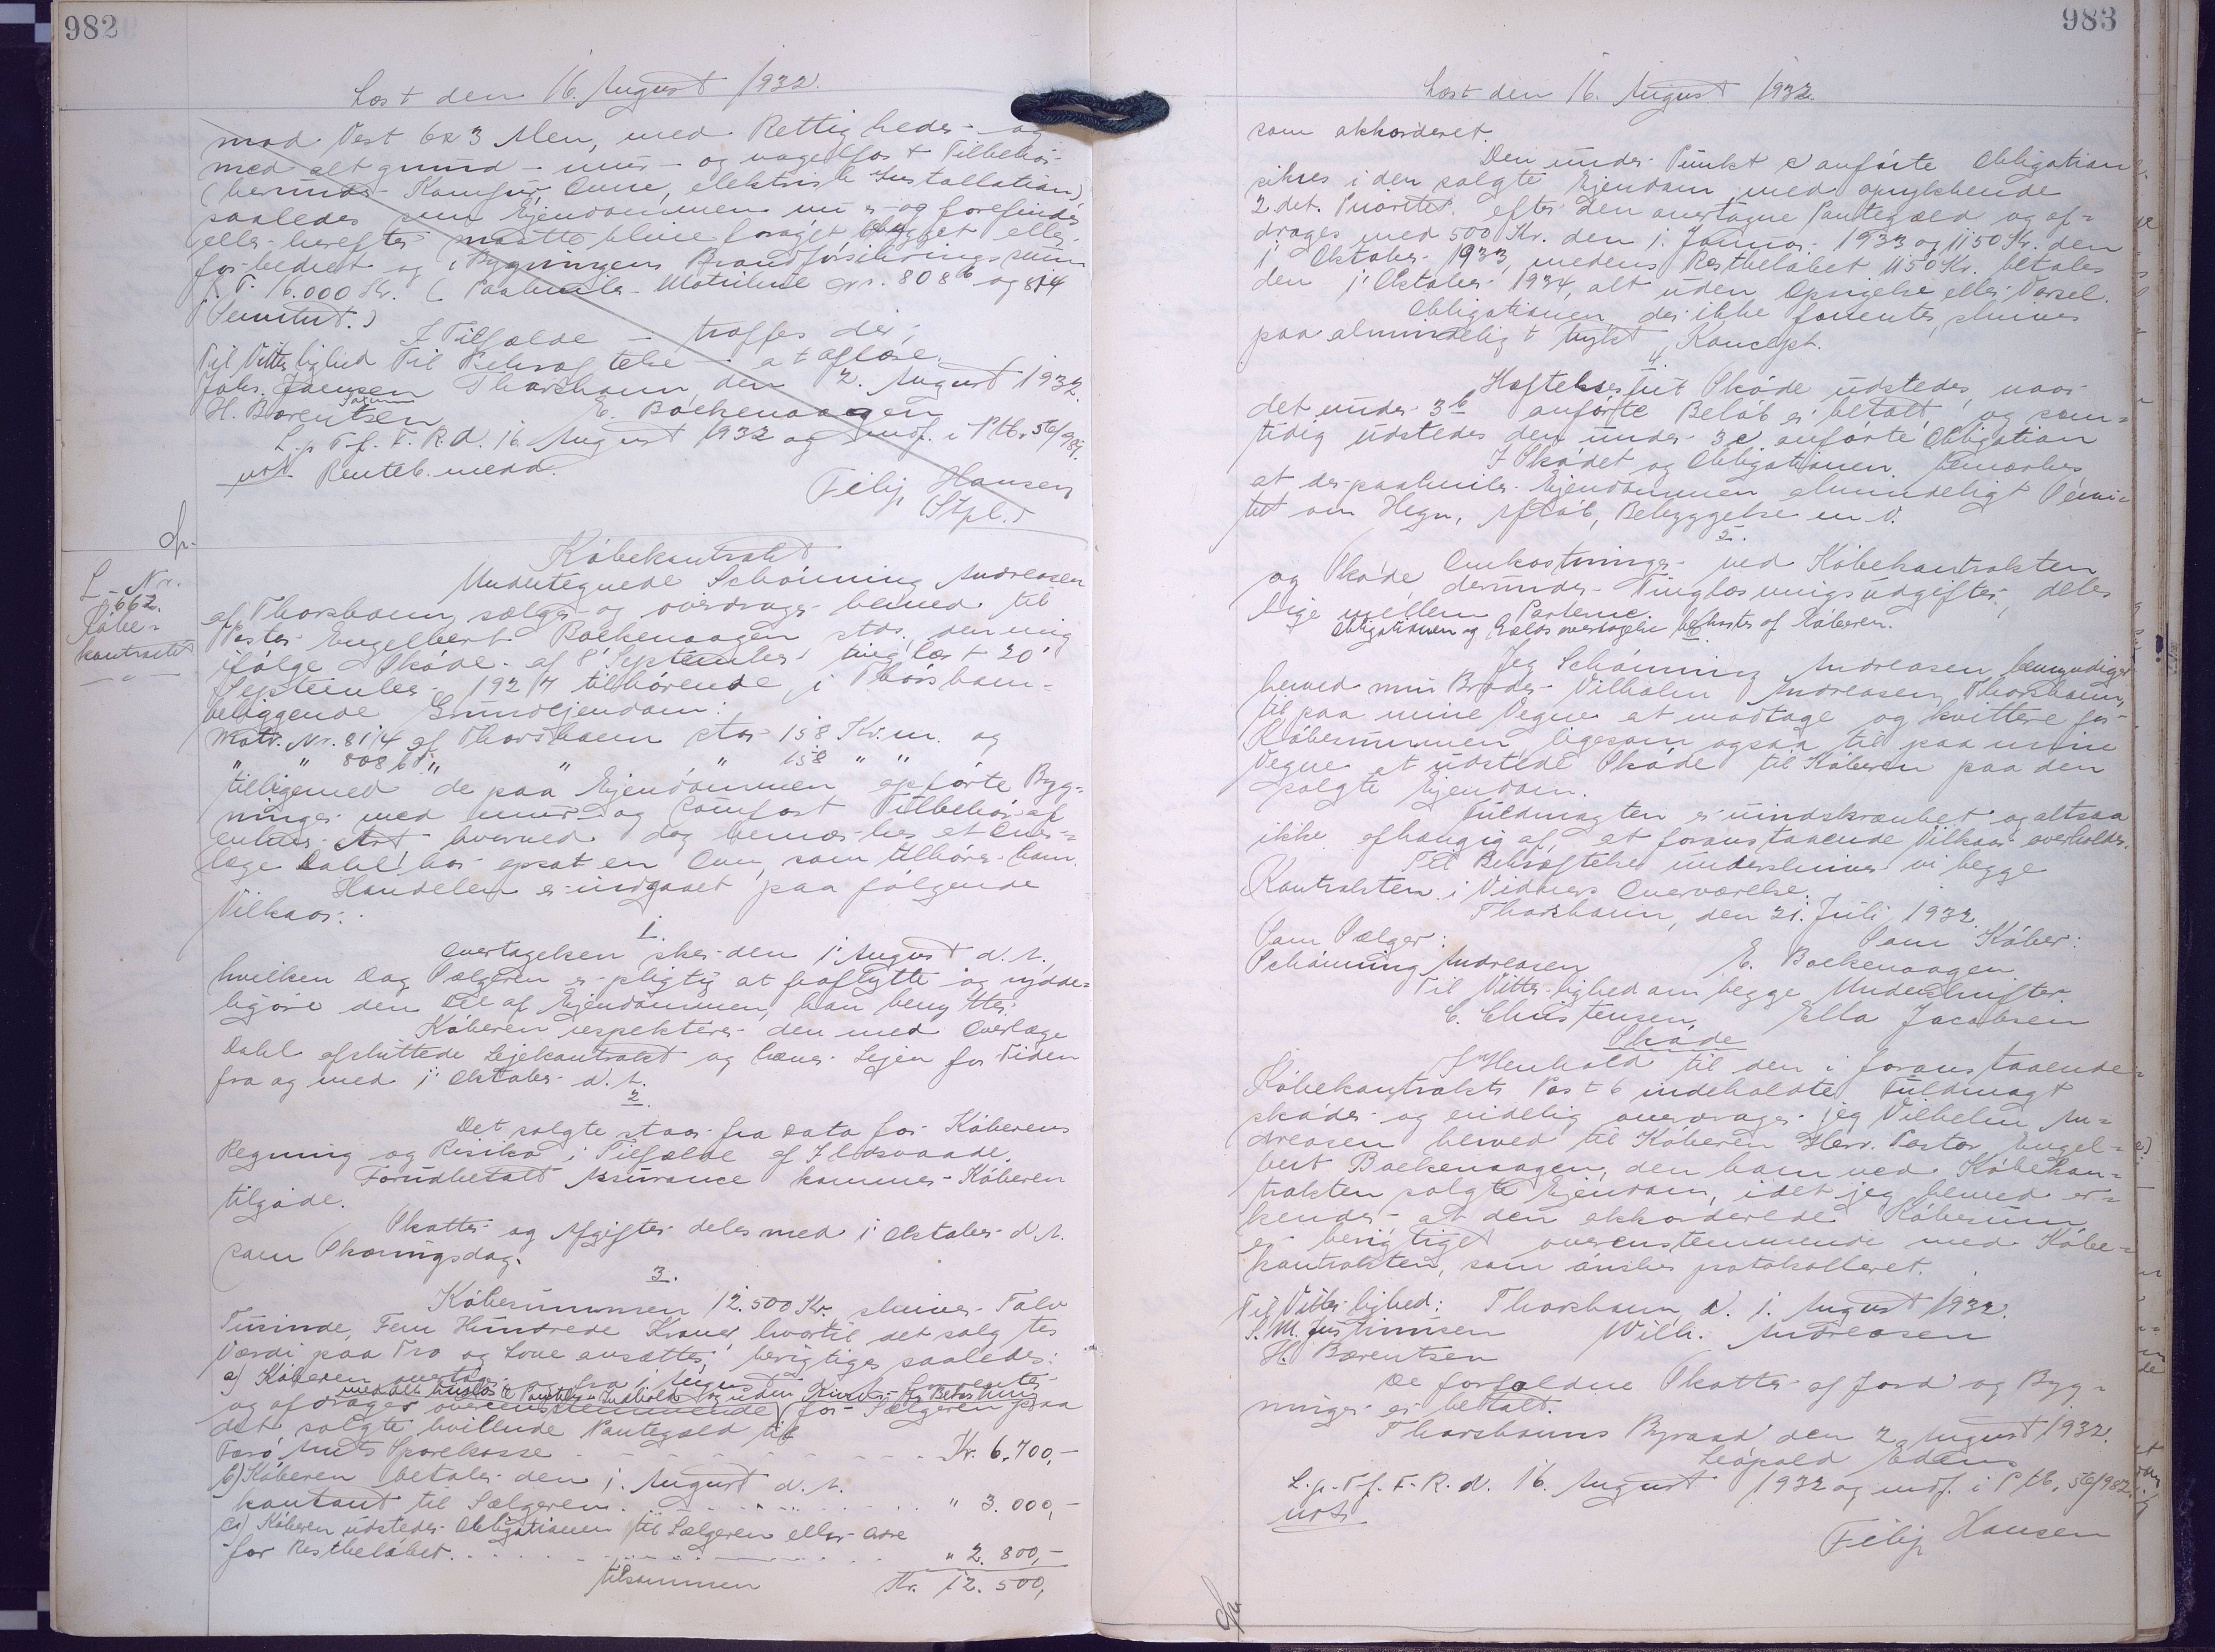 982
Læst den 16. August 1932.
mod Vest 6 x 3 Alen, med Rettigheder og
med alt grund- mur- og nagelfast Tilbehør
(herunder Komfur, Ovne, elektrisk Installation)
saaledes som Ejendommen nu er og forefindes
eller herefter maatte blive forøget bygget eller
forbedret og i Bygningens Brandforsikringssum
p. T. 16.000 Kr. (Paahviler Matrikul Nr. 808 b og 814
Servitut.)
I Tilfælde — træffes der;
Til Vitterlighed Til Bekræftelse - at aflæse.
Johs. Joensen Thorshavn, den 2. August 1932.
H. Børentsen E. Bockenaagen
L. p. T. f. F. R. d. 16. August 1932 og indf. i Ptb. 56/981.
Renteb. medd.
Filip Hansen
(Stpl.)
L-Nr.
662.
Købe-
kontrakt
Købekontrakt
Undertegnede Schønning Andreasen
af Thorshavn sælger og overdrager herved til
Pastor Engelbert Bockenaagen stds. den mig
ifølge Skøde af 8' September, tinglæst 20'
September 1927 tilhørende, i Thorshavn
beliggende Grundejendom:
Matr. Nr. 814 af Thorshavn stor 158 Kv.m. og
" " 808 b " " " 158 " "
tilligemed de paa Ejendommen opførte Byg-
ninger med mur- og Tilbehør af
enhver Art hvorved dog bemærkes at Over-
læge Dahl har opsat en Ovn, som tilhører ham.
Handelen er indgaaet paa følgende
Vilkaar:
1.
Overtagelsen sker den 1' August d. A.,
hvilken Dag Sælgeren er pligtig at fraflytte og rydde-
liggøre den Del af Ejendommen, han benytter.
Køberen respekterer den med Overlæge
Dahl afsluttede Lejekontrakt og hæver Lejen for Tiden
fra og med 1' Oktober d. A.
2.
Det solgte staar fra Dato for Køberens
Regning og Risiko i Tilfælde af Ildsvaade.
Forudbetalt Assurance kommer Køberen
tilgode.
Skatter og Afgifter deles med 1' Oktober d. A.
som Skæringsdag.
3.
Købesummen 12.500 Kr., skriver Tolv
Tusinde, Fem Hundrede Kroner, hvortil det solgtes
Værdi paa Tro og Love ansættes, berigtiges saaledes:
a) Køberen overtager og fra 1' August d. A. forrenter
og afdrager overensstemmende for Sælgeren paa
det solgte hvilende Pantegæld til
Færø Amts Sparekasse Kr. 6.700,-
b) Køberen betaler den 1. August d. A.
kontant til Sælgeren " 3.000,-
c) Køberen udsteder Obligationen til Sælgeren eller Ordre
for Restbeløbet " 2.800,-
tilsammen Kr. 12.500,
983
Læst den 16. August 1932.
som akkorderet.
Den under Punkt c anførte Obligation
sikres i den solgte Ejendom med oprykkende
2.det. Prioritet efter den overtagne Pantegæld og af-
drages med 500 Kr. den 1. Januar 1933 og 1150 Kr. den
1' Oktober 1933, medens Restbeløbet 1150 Kr. betales
den 1' Oktober 1934, alt uden Opsigelse eller Varsel.
Obligationen, der ikke forrentes, skrives
paa almindeligt trykt Koncept.
4.
Hæftelsesfrit Skøde udstedes, naar
det under 3 b anførte Beløb er betalt, og sam-
tidig udstedes den under 3 c anførte Obligation
I Skødet og Obligationen bemærkes
at der paahviler Ejendommen almindeligt Servi-
tut om Hegn, Afløb, Bebyggelse m. v.
5.
Omkostninger ved Købekontrakten
og Skøde, derunder Tinglæsningsudgifter, deles
lige mellem Parterne.
Obligationen og Gældsovertagelse bekostes af Køberen.
Jeg Schønning Andreasen bemyndiger
herved min Broder Vilhelm Andreasen, Thorshavn,
til paa mine Vegne at modtage og kvittere for
Købesummen ligesom ogsaa til paa mine
Vegne at udstede Skøde til Køberen paa den
solgte Ejendom.
Fuldmagten er uindskrænket og altsaa
ikke afhængig af, at foranstaaende Vilkaar overholdes.
Til Bekræftelse underskriver vi begge
Kontrakten i Vidners Overværelse.
Thorshavn, den 21. Juli 1932.
Som Sælger: Som Køber:
Schønning Andreasen E. Bockenaagen
Til Vitterlighed om begge Underskrifter.
C. Christensen, Ella Jacobsen
Skøde
I Henhold til den i foranstaaende
Købekontrakts Post 6 indeholdte Fuldmagt
skøder og endelig overdrager jeg Vilhelm An-
dreasen herved til Køberen Herr Pastor Engel-
bert Bockenaagen, den ham ved Købekon-
trakten solgte Ejendom, idet jeg herved er-
kender at den akkorderede Købesum
er berigtiget overensstemmende med Købe-
kontrakten, som ønskes protokolleret.
Til Vitterlighed: Thorshavn, d. 1. August 1932.
S. M. Justinussen Wilh. Andreasen
H. Børentsen
De forfaldne Skatter af Jord og Byg-
ninger er betalt.
Thorshavns Byraad den 2. August 1932.
Leopold Edens
L. p. T. f. F. R. d. 16. August 1932 og indf. i Ptb. 56/982.
Filip Hansen